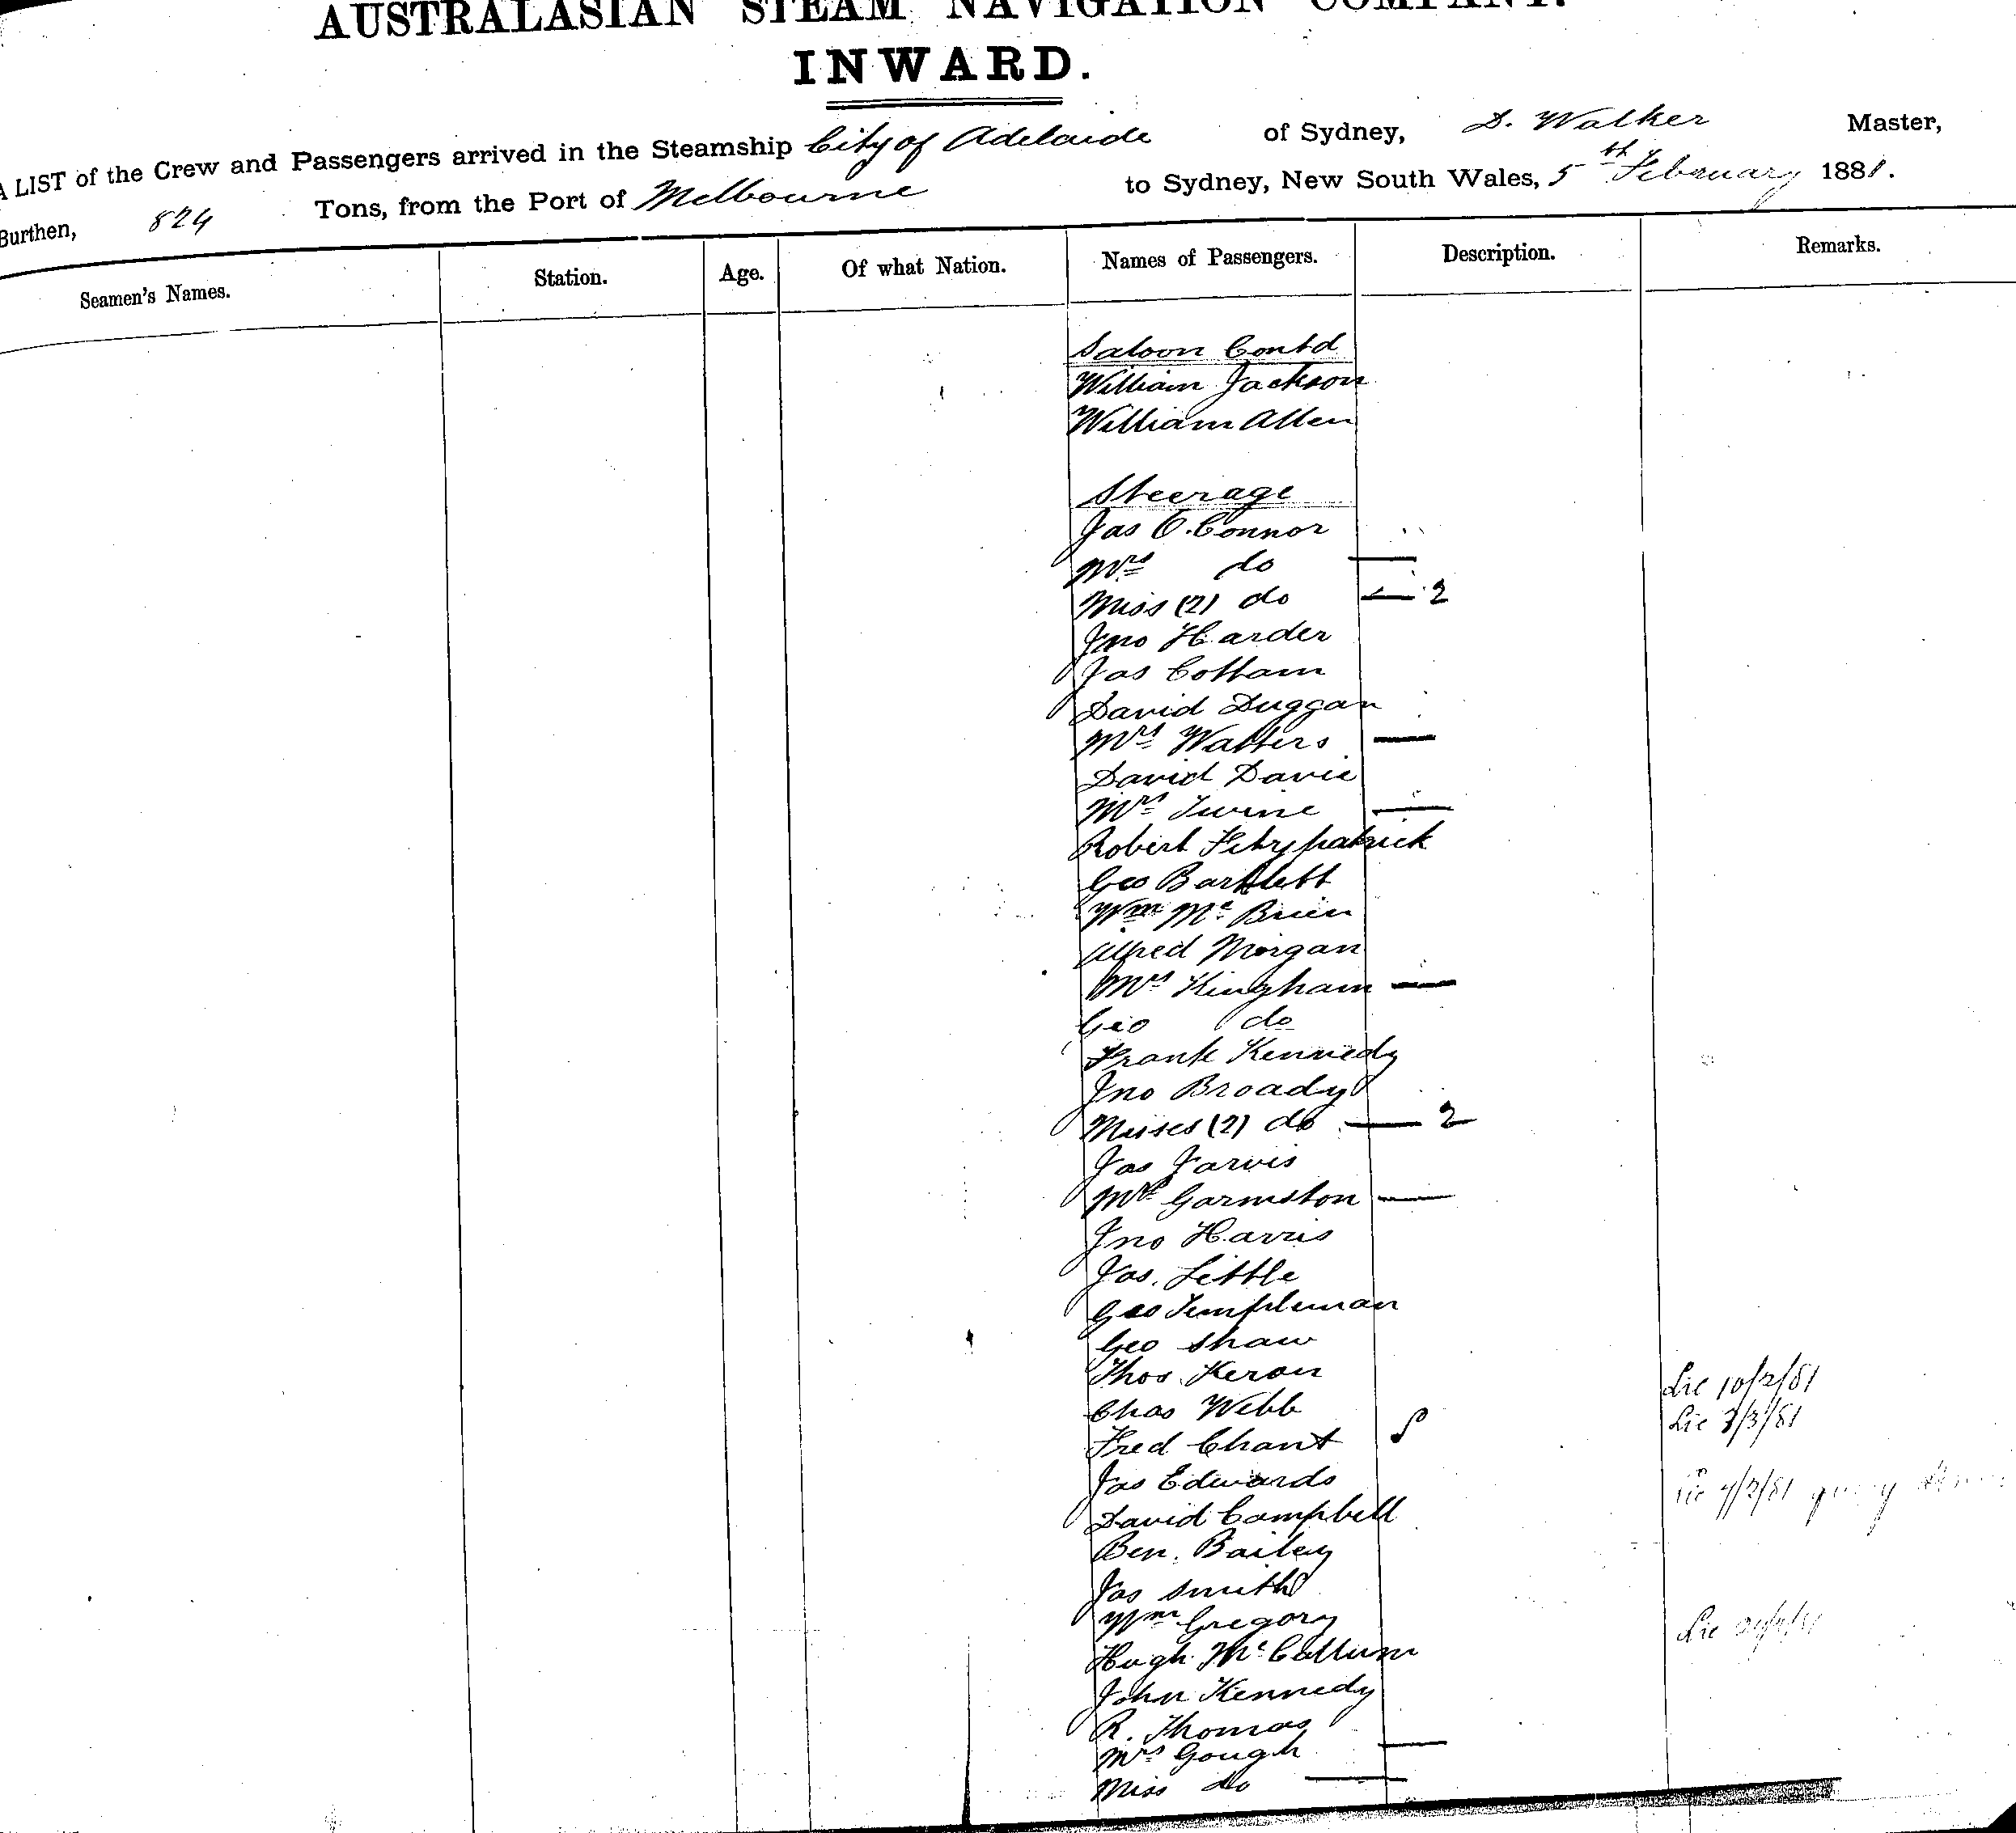 AUSTRALASIAN STEAM NAVIGATION COMPANY.
INWARD.
A LIST of the Crew and Passengers arrived in the Steamship City of Adelaide of Sydney, D. Walker Master,
Burthen, 824 Tons, from the Port of Melbourne to Sydney, New South Wales, 5th February 1881.
Seamen's Names. Station. Age. Of what Nation. Names of Passengers. Description. Remarks.
Saloon Contd
William Jackson
William Allen
Steerage
Jas O.Connor
Mrs do —
Miss (2) do — 2
Jno Harder
Jas Cottam
David Duggan
Mrs Watters —
David Davie
Mrs Irvine —
Robert Fitzpatrick
Geo Bartlett
Wm Mc Brien
Alfred Morgan
Mrs Kingham —
Geo do
Frank Kennedy
Jno Broady
Misses (2) do — 2
Jas Jarvis
Mrs Garmston —
Jno Harris
Jas. Little
Geo Templeman
Geo Shaw
Thos. Keron
Chas Webb Lic 10/2/81
Fred Chant Lic 3/3/81
Jas Edwards
David Campbell /2/81 query
Ben. Bailey
Jas Smith
Wm Gregory
Hugh McCallum Lic
John Kennedy
R. Thomas
Mrs Gough —
Miss do —